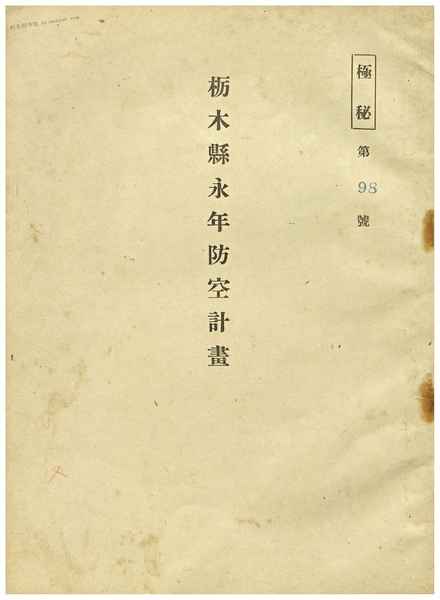 極秘
第
98
號
栃木縣永年防空計畫